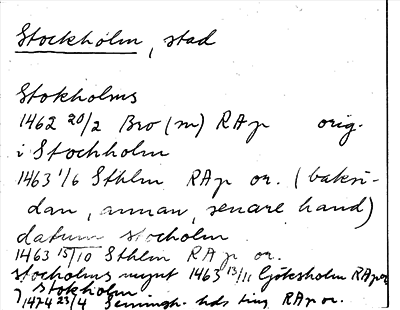 Stockholm, stad
Stokholms
1462 20/2 Bro (m) RAp orig.
i Stochholm
1463 1/6 Sthlm RAp or. (baksi-
dan, annan, senare hand)
datum stocholm
1463 15/10 Sthlm RAp or.
stocholms mynt 1463 13/11 Göksholm RAp or
J Stokholm
1474 23/4 hds ting RAp or.